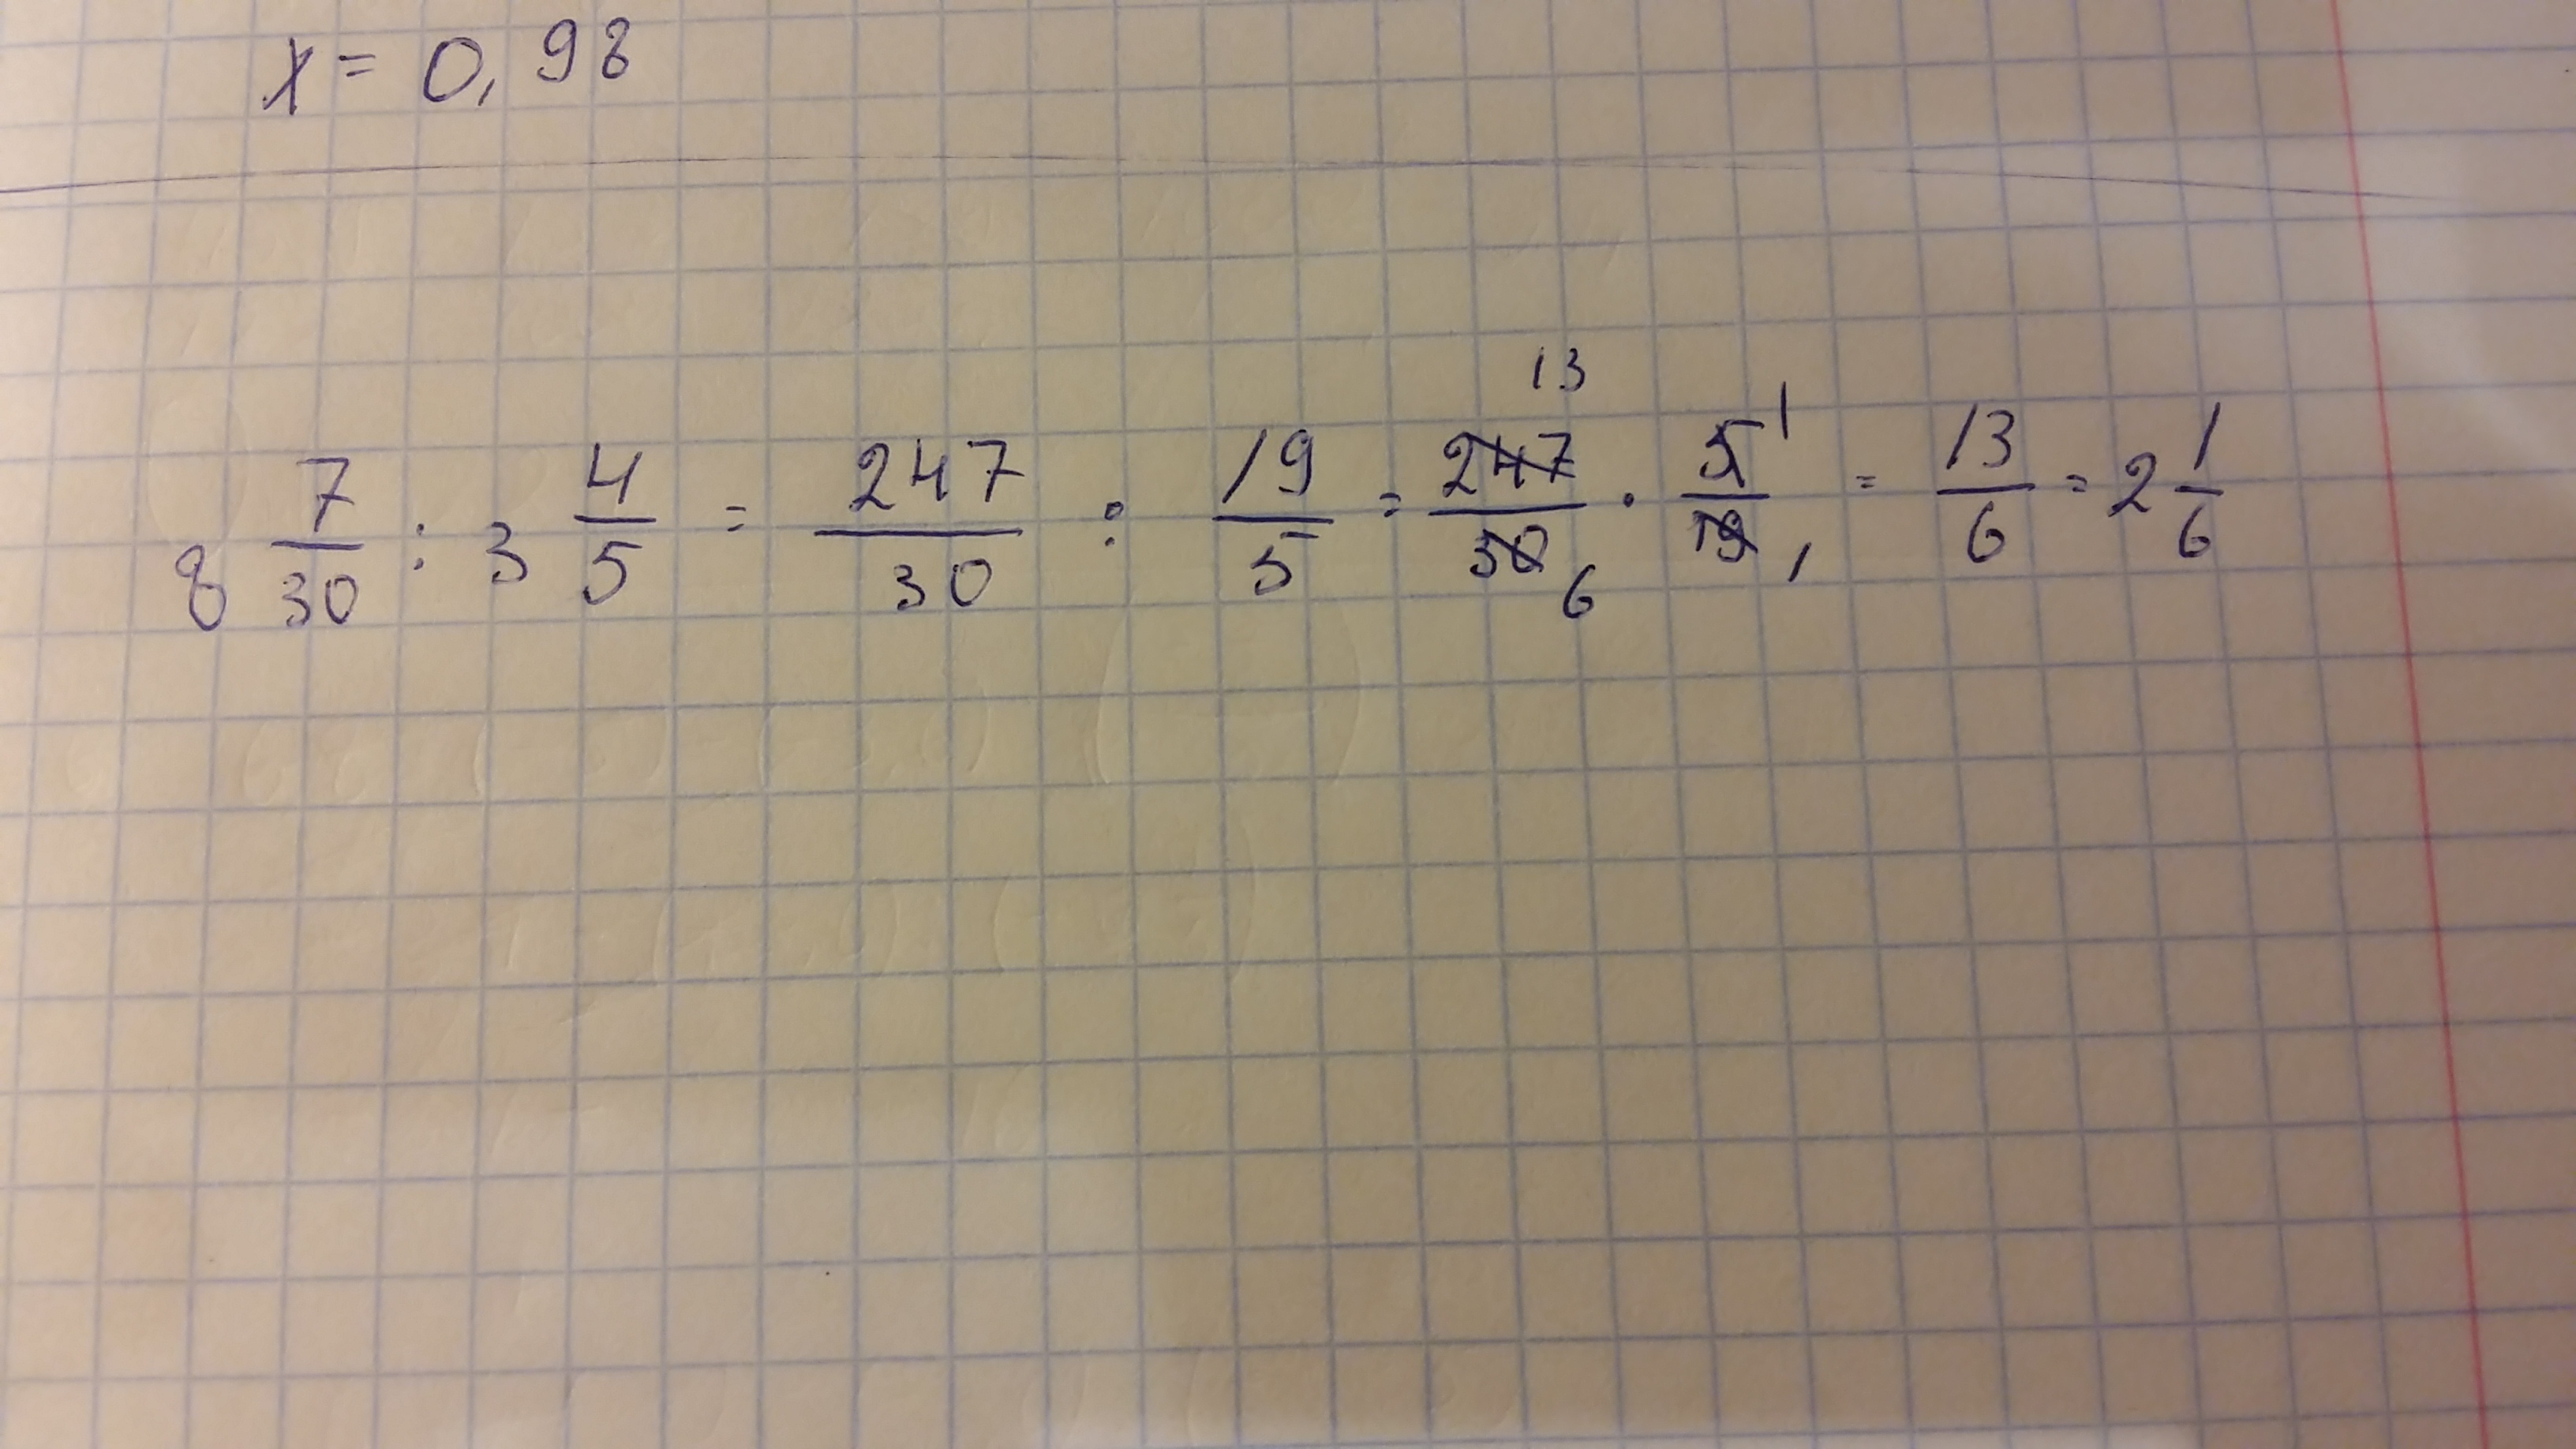 x = 0,98
8 7/30 : 3 4/5 = 247/30 : 19/5 = 247 13/30 6 · 5 1/19 1 = 13/6 = 2 1/6